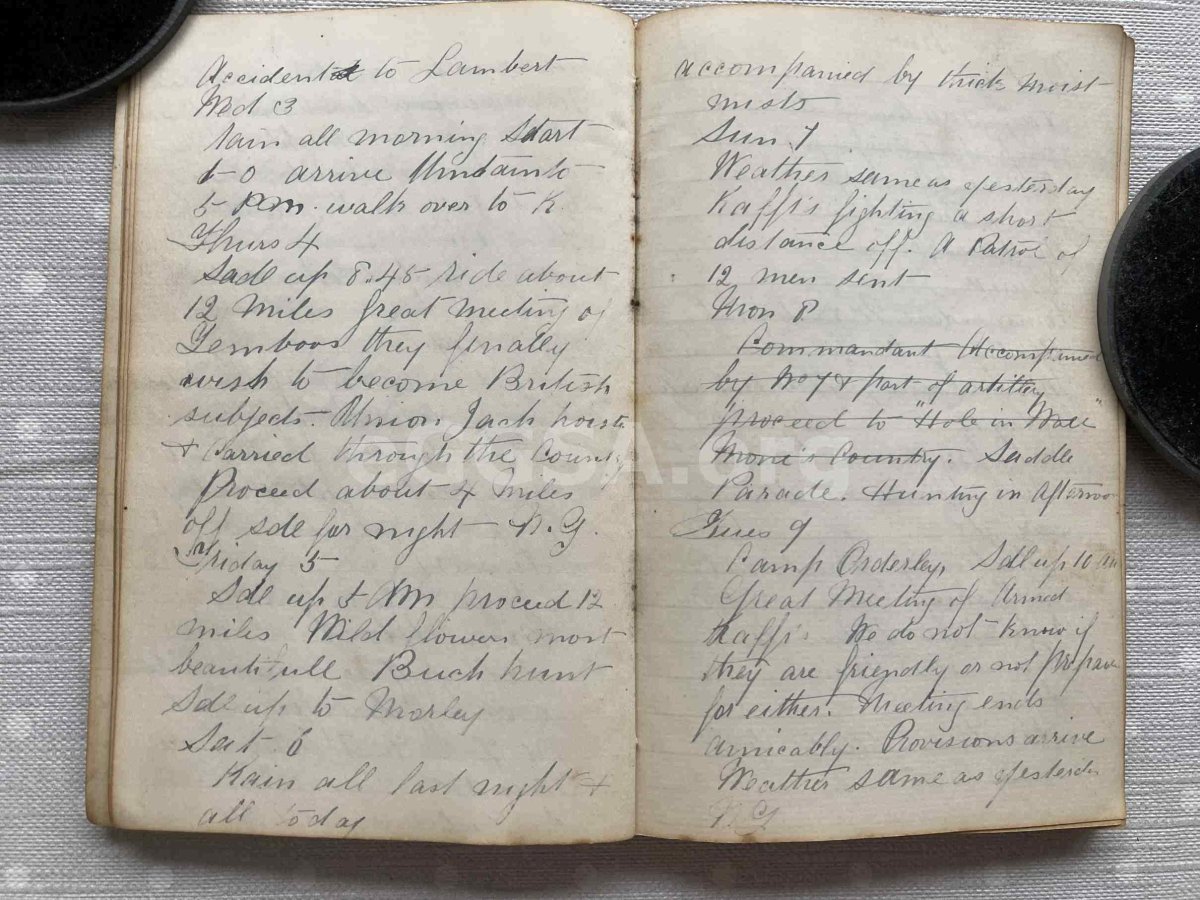 Accident to Lambert
Wed 3
Rain all morning Start
arrive
5 P.m. walk over to K.
Thurs 4
Sadl up 8.45 ride about
12 Miles Great meeting of
Temboos they finally
wish to become British
subjects. Union Jack hoist
+ Carried through the County
Proceed about 4 Miles
off sdle for night N.G.
Friday 5
Sdl up AM proceed 12
miles Wild flowers most
beautifull Buck hunt
Sdl up to Morley
Sat 6
Rain all last night +
all today
accompanied by thick moist
mists
Sun 7
Weather same as yesterday
Kaffi's fighting a short
distance off. A Patrol of
12 men sent
Mon 8
Commandant Accompanied
by No 7 & part of artillery
proceed to "Hole in Wall"
Moni's Country. Saddle
Parade. Hunting in Afternoon
Tues 9
Camp Orderley, Sdl up 10 am
Great Meeting of Armed
Kaffi's We do not know if
they are friendly or not prepare
for either. Meeting ends
amicably. Provisions arrive
Weather same as yesterday
N G
TedaSA.org